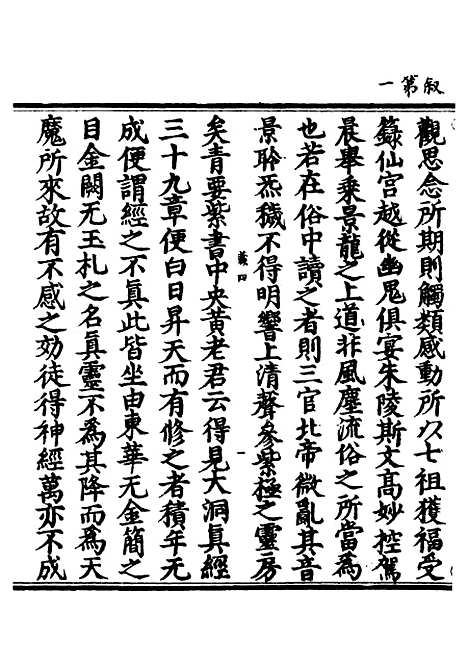 叙第一
觀思念所期則觸類感動所以七祖獲福受
籙仙宮越從幽鬼俱宴朱陵斯文高妙控駕
晨轝乘景龍之上道非風塵流俗之所當為
也若在俗中讀之者則三官北帝微亂其音
景聆炁穢不得明響上清聲參紫極之靈房
義四
一
矣青要紫書中央黃老君云得見大洞真經
三十九章便白日昇天而有修之者積年无
成便謂經之不真此皆坐由東華无金簡之
目金闕无玉札之名真靈不為其降而為天
魔所來故有不感之効徒得神經萬亦不成